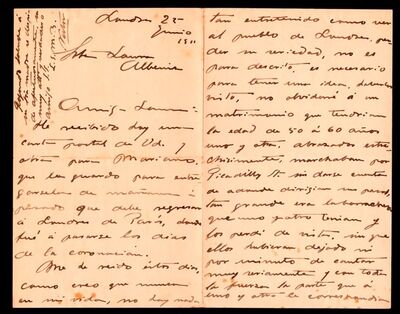 Londres 22
Junio 1911
Srta Laura
Albeniz
Amiga Laura:
He recibido hoy una
carta postal de Vd. y
otra para Mariano,
que le guardo para entre
garselas de mañana á
pasado que debe regresar
á Londres de París, donde
fué á pasarse los dias
de la coronación.
Me he reido estos dias
como creo que nunca
en mi vida, no hay nada
tan entretenido como ver
al pueblo de Londres, per
der su seriedad, no es
para descrito, es necesario
para tener una idea, haberlo
visto, no olvidaré á un
matrimonio que tendrian
la edad de 50 á 60 años
uno y otro, abrazados entre
chisimente, marchaban por
Picadilly St sin darse cuenta
de adonde dirigian su paso,
tan grande era la borrachera
que uno y otro tenian y
los perdi de vista, sin que
ellos hubieran dejado ni
por un minuto de cantar
muy seriamente y con toda
la fuerza la parte que á
uno y otro le correspondian